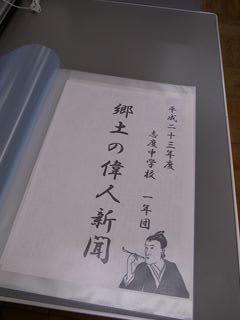 平成二十三年度
志度中学校 一年団
郷土の偉人新聞